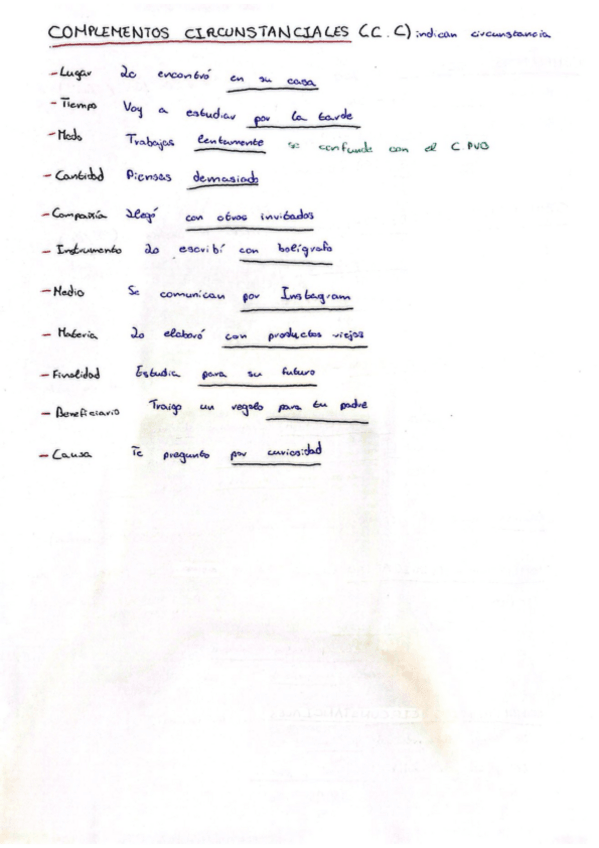 COMPLEMENTOS CIRCUNSTANCIALES (C.C) indican circunstancia
- Lugar Lo encontró en su casa
- Tiempo Voy a estudiar por la tarde
- Modo Trabajas lentamente se confunde con el C PVO
- Cantidad Piensas demasiado
- Compañía Llegó con otros invitados
- Instrumento Lo escribí con bolígrafo
- Medio Se comunican por Instagram
- Materia Lo elaboró con productos viejos
- Finalidad Estudia para su futuro
- Beneficiario Traigo un regalo para tu padre
- Causa Te pregunto por curiosidad